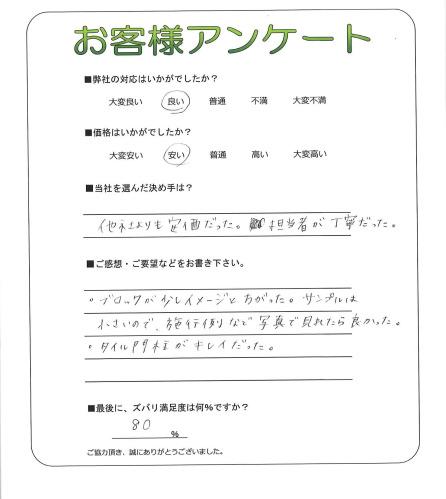 お客様アンケート
■弊社の対応はいかがでしたか?
大変良い 良い 普通 不満 大変不満
■価格はいかがでしたか?
大変安い 安い 普通 高い 大変高い
■当社を選んだ決め手は?
他社よりも安価だった。担当者が丁寧だった。
■ご感想・ご要望などをお書き下さい。
・ブロックが少しイメージとちがった。サンプルは
小さいので、施行例など写真で見れたら良かった。
・タイル門柱がキレイだった。
■最後に、ズバリ満足度は何%ですか?
80 %
ご協力頂き、誠にありがとうございました。